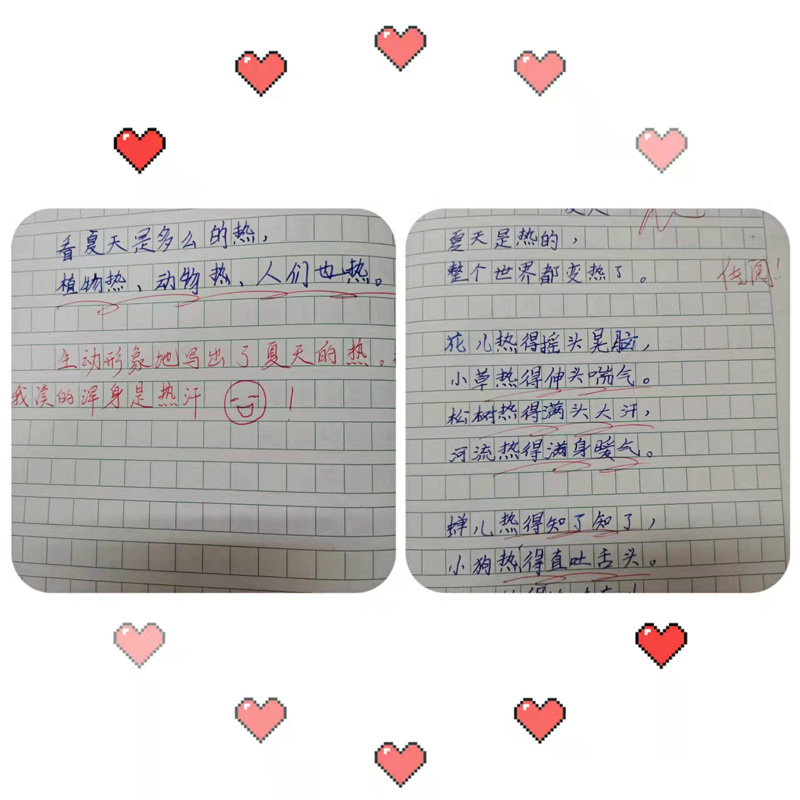 看夏天是多么的热，
植物热、动物热、人们也热。
生动形象地写出了夏天的热。
我渼的浑身是热汗
夏天是热的，
整个世界都变热了。
佳
花儿热得摇头晃脑，
小草热得伸头喘气。
松树热得满头大汗，
河流热得满身暖气。
蝉儿热得知了知了，
小狗热得直吐舌头。